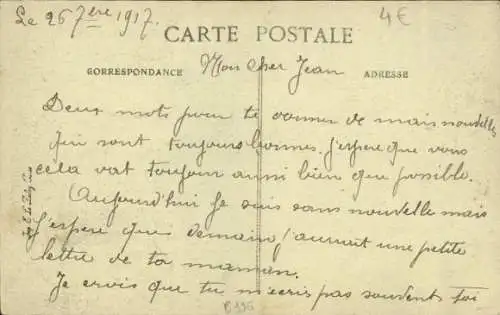 Le 26 7ère 1917.
4€
CARTE POSTALE
CORRESPONDANCE
Mon cher Jean
ADRESSE
Deux mots pour te donner de mais nouvelles
qui sont toujours bonnes. j'espère que vous
cela vat toujour aussi bien que possible.
Aujourd'hui je suis sans nouvelle mais
j'espère que demain j'aurait une petite
lettre de ta maman.
Je crois que tu m'ecris pas souvent toi
B195